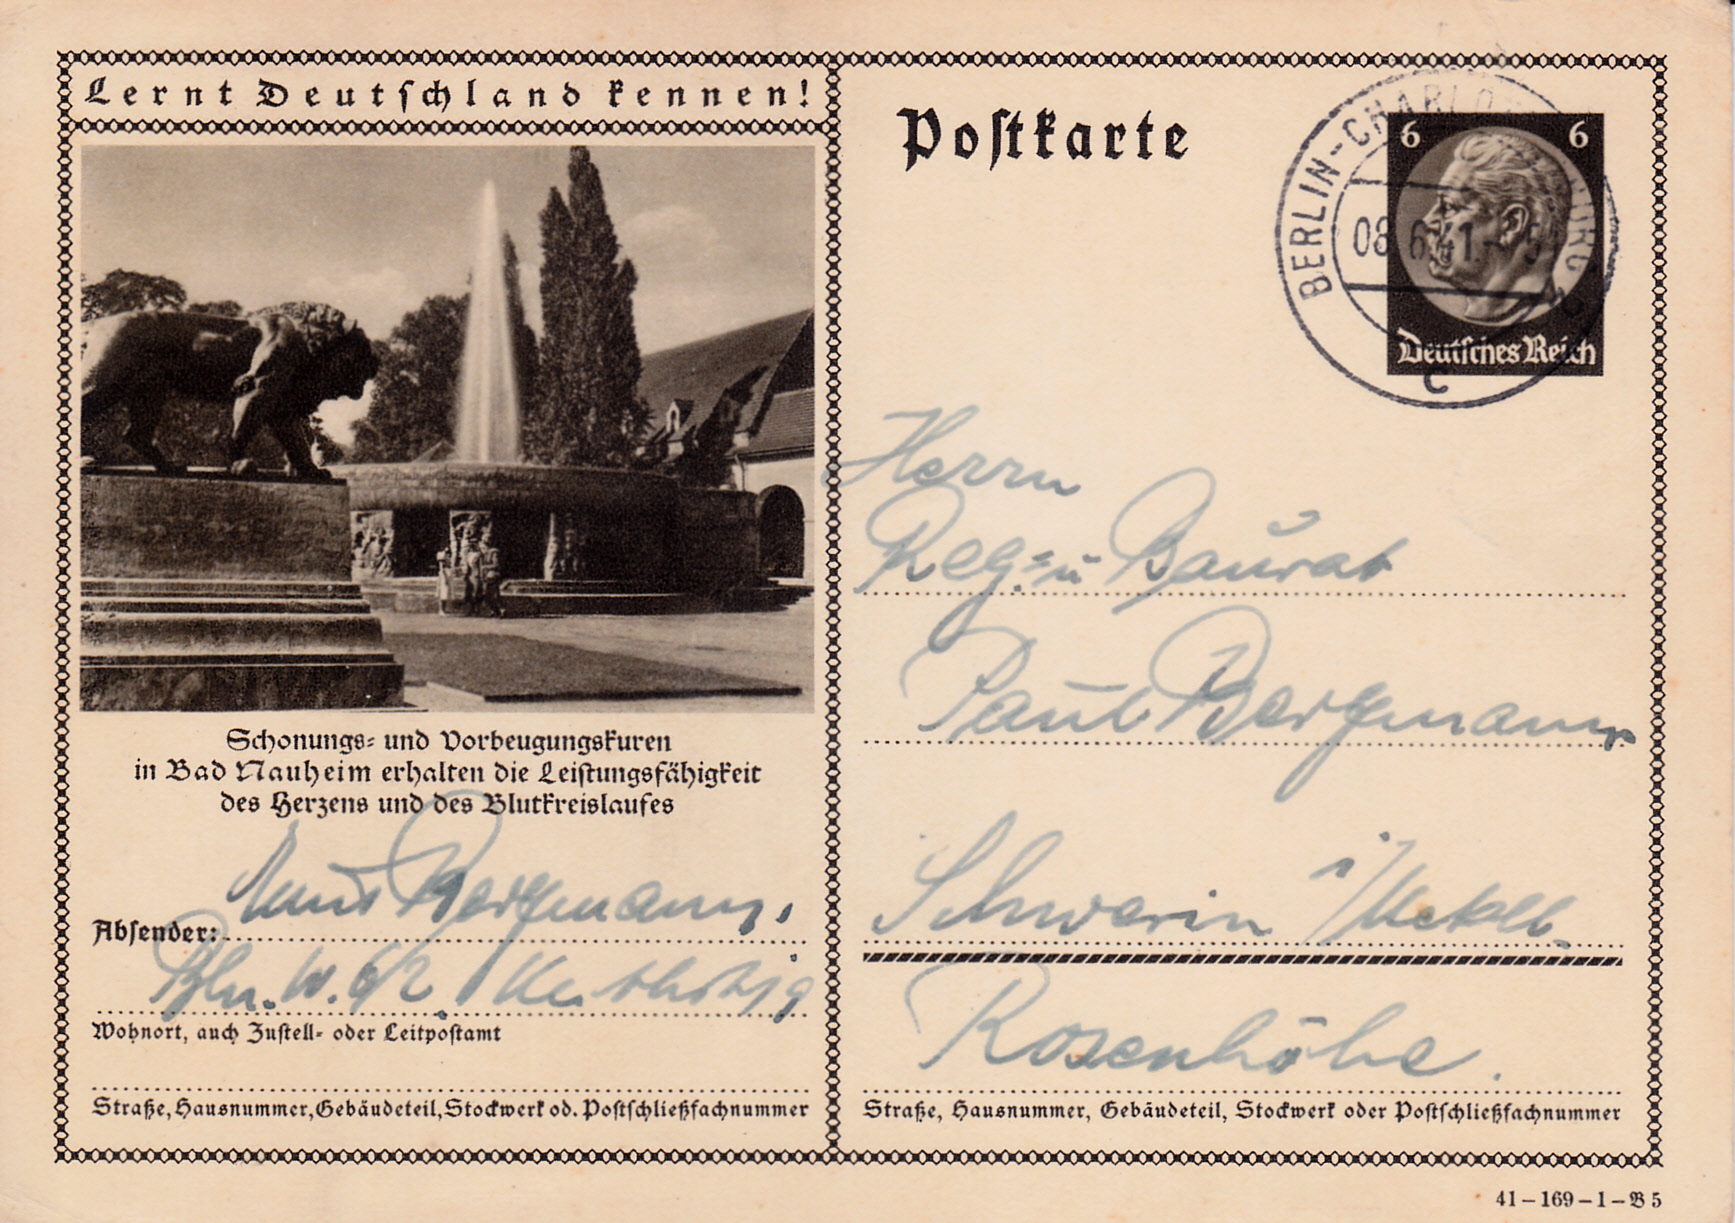 Lernt Deutschland kennen!
Schonungs- und Vorbeugungskuren
in Bad Nauheim erhalten die Leistungsfähigkeit
des Herzens und des Blutkreislaufes
Bergmann,
Absender:
Bln. W.
Wohnort, auch Zustell- oder Leitpostamt
Straße, Hausnummer, Gebäudeteil, Stockwerk od. Postschließfachnummer
Postkarte
6 6
Deutsches Reich
BERLIN-CHARLOTTENBURG
08.6.41.
c
Herrn
Reg.- u Baurat
Paul Bergmann
Schwerin i/Meckl.
Rosenhöhe.
Straße, Hausnummer, Gebäudeteil, Stockwerk oder Postschließfachnummer
41–169–1–B 5